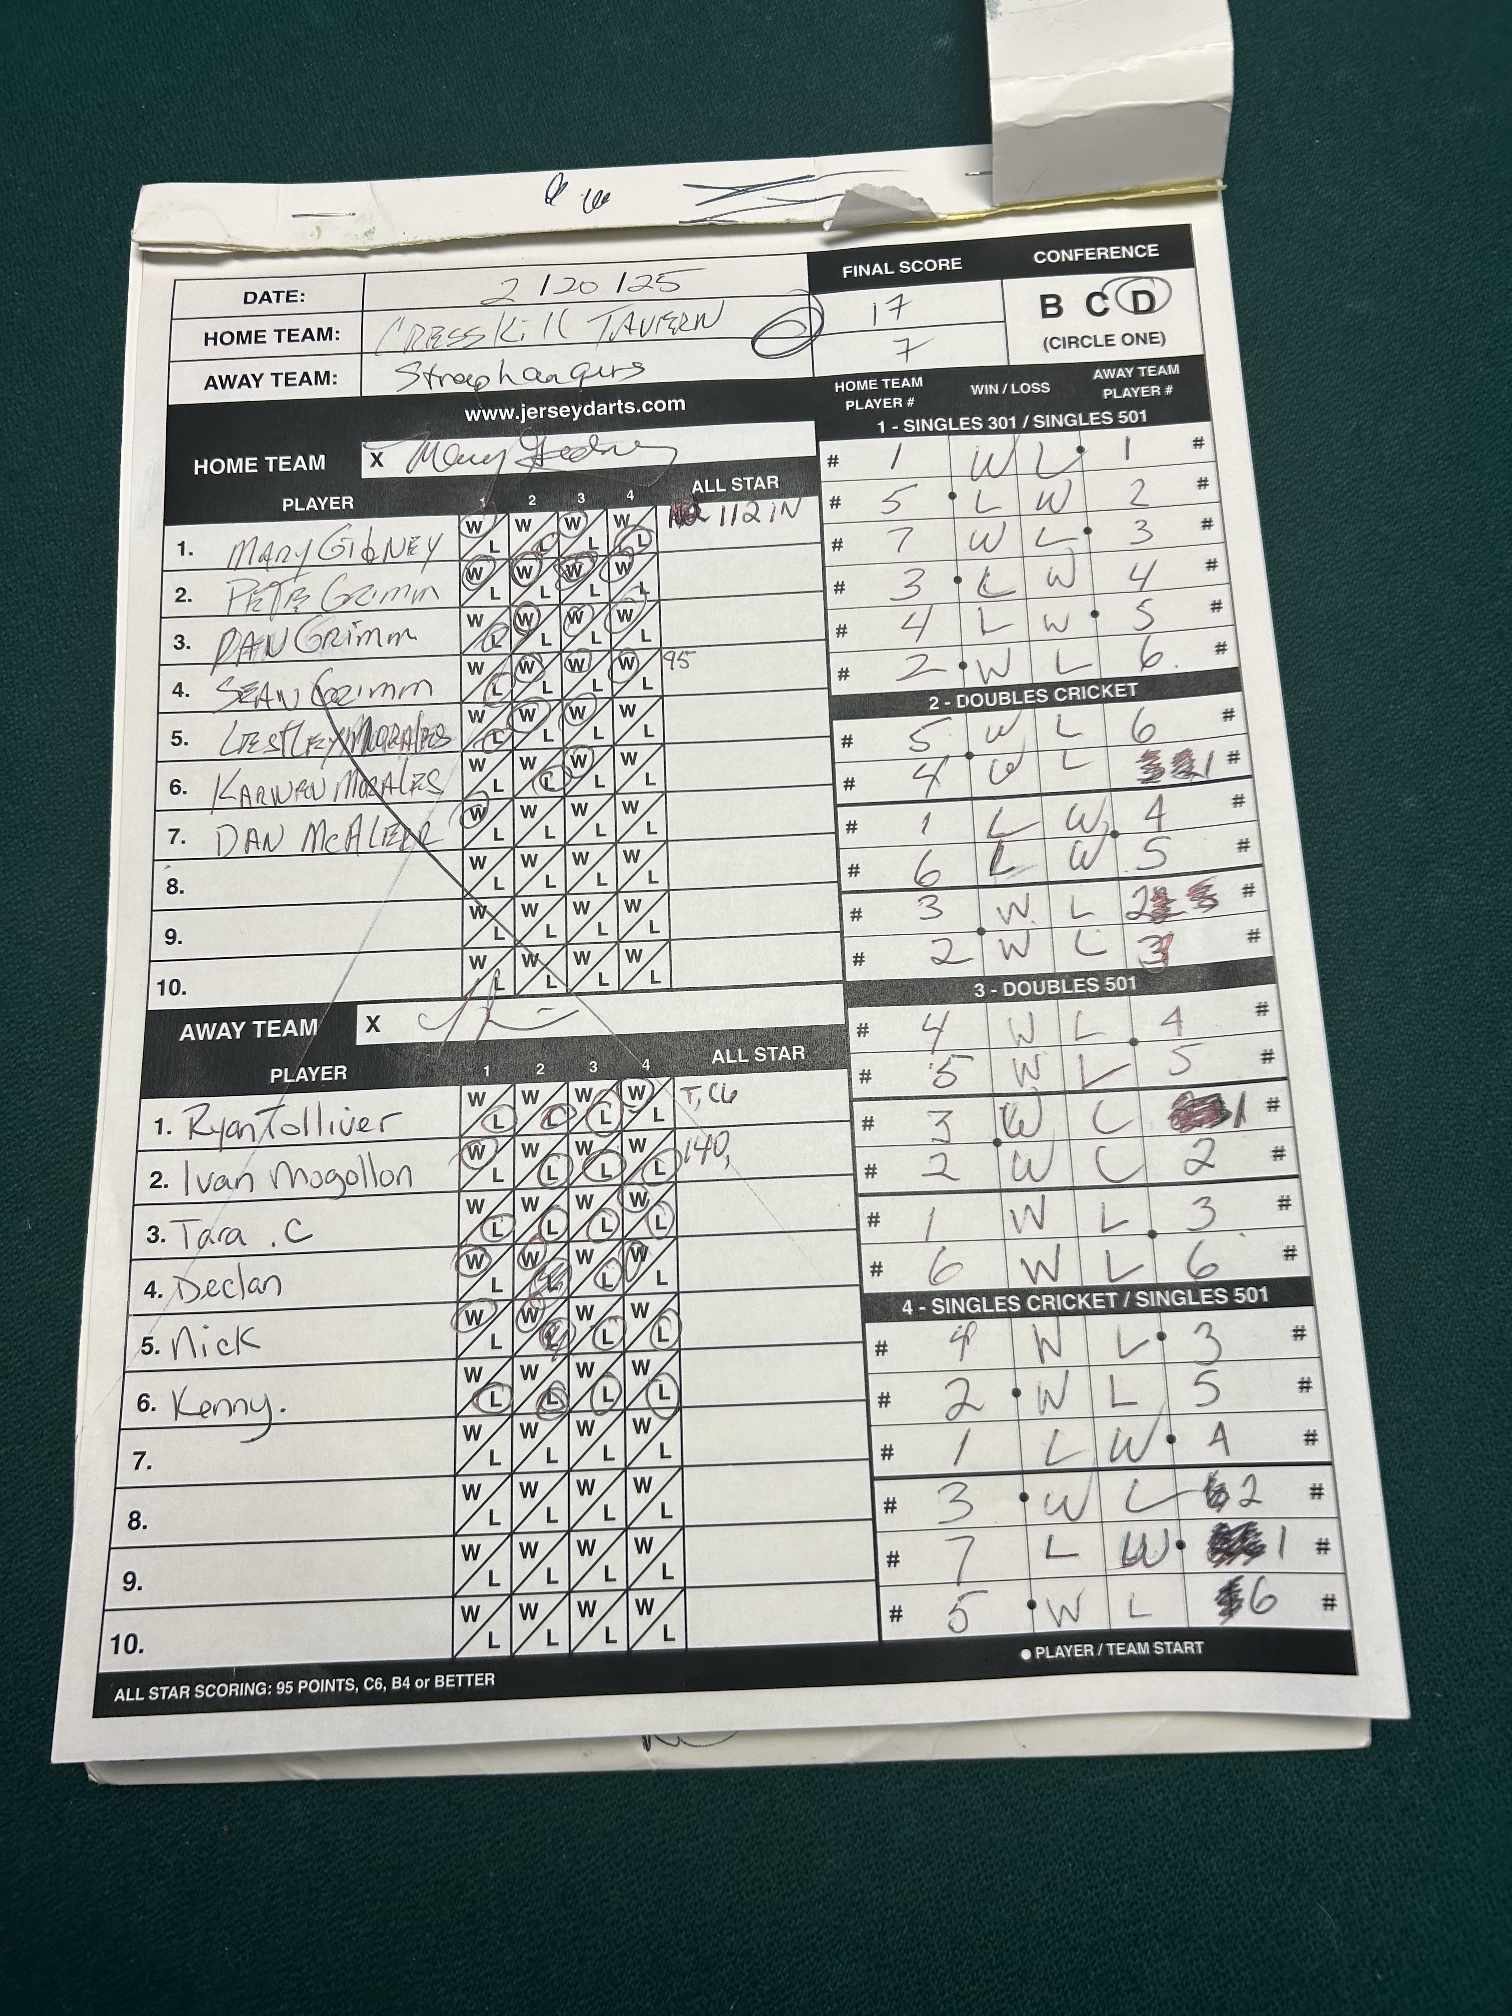 DATE: 2/20/25
HOME TEAM: CRESSKILL TAVERN
AWAY TEAM: Straphangers
FINAL SCORE
17
7
CONFERENCE
B C D
(CIRCLE ONE)
www.jerseydarts.com
HOME TEAM X
PLAYER 1 2 3 4 ALL STAR
1. MARY GIBNEY W L W L W L W L 112 IN
2. PETE GRIMM W L W L W L W L
3. DAN GRIMM W L W L W L W L
4. SEAN GRIMM W L W L W L W L 95
5. LESTLEY MORALES W L W L W L W L
6. KARWEN MORALES W L W L W L W L
7. DAN MCALEER W L W L W L W L
8. W L W L W L W L
9. W L W L W L W L
10. W L W L W L W L
AWAY TEAM X
PLAYER 1 2 3 4 ALL STAR
1. Ryan Tolliver W L W L W L W L T, C6
2. Ivan Mogollon W L W L W L W L 140,
3. Tara .C W L W L W L W L
4. Declan W L W L W L W L
5. Nick W L W L W L W L
6. Kenny. W L W L W L W L
7. W L W L W L W L
8. W L W L W L W L
9. W L W L W L W L
10. W L W L W L W L
ALL STAR SCORING: 95 POINTS, C6, B4 or BETTER
HOME TEAM PLAYER # WIN / LOSS AWAY TEAM PLAYER #
1 - SINGLES 301 / SINGLES 501
# 1 W L 1 #
# 5 L W 2 #
# 7 W L 3 #
# 3 L W 4 #
# 4 L W 5 #
# 2 W L 6. #
2 - DOUBLES CRICKET
# 5 W L 6 #
# 4 W L 1 #
# 1 L W 4 #
# 6 L W 5 #
# 3 W L 2 #
# 2 W L 3 #
3 - DOUBLES 501
# 4 W L 4 #
# 5 W L 5 #
# 3 W L 1 #
# 2 W L 2 #
# 1 W L 3 #
# 6 W L 6 #
4 - SINGLES CRICKET / SINGLES 501
# 4 W L 3 #
# 2 W L 5 #
# 1 L W 4 #
# 3 W L 2 #
# 7 L W 1 #
# 5 W L 6 #
PLAYER / TEAM START